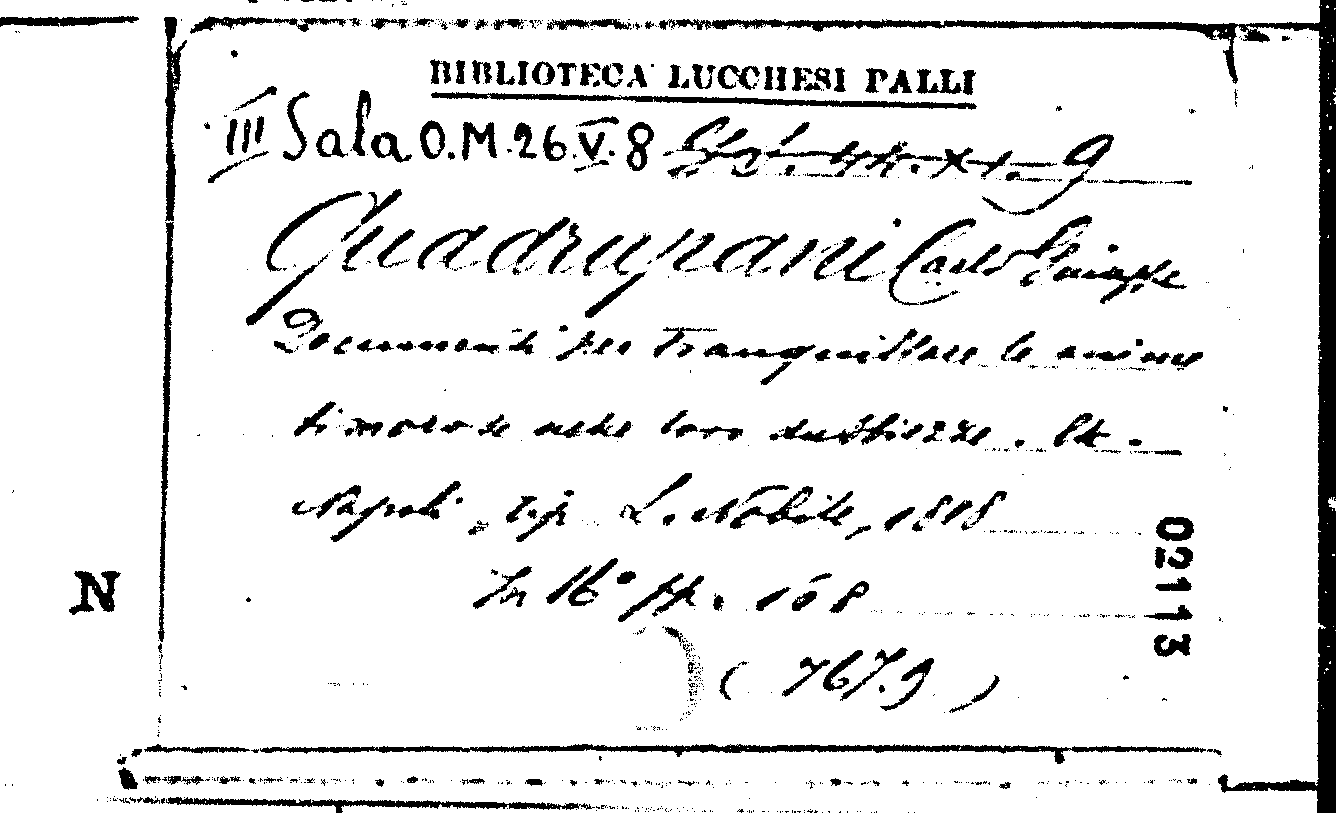 BIBLIOTECA LUCCHESI PALLI
III Sala O.M. 26.V.8 44. XI. 9
Quadrupani Carlo Giuseppe
Documenti per tranquillare le anime
timorose nelle loro dubbiezze.
Napoli, tip. L. Nobile, 1818
In 16° pp. 168
(767.9)
N
02113